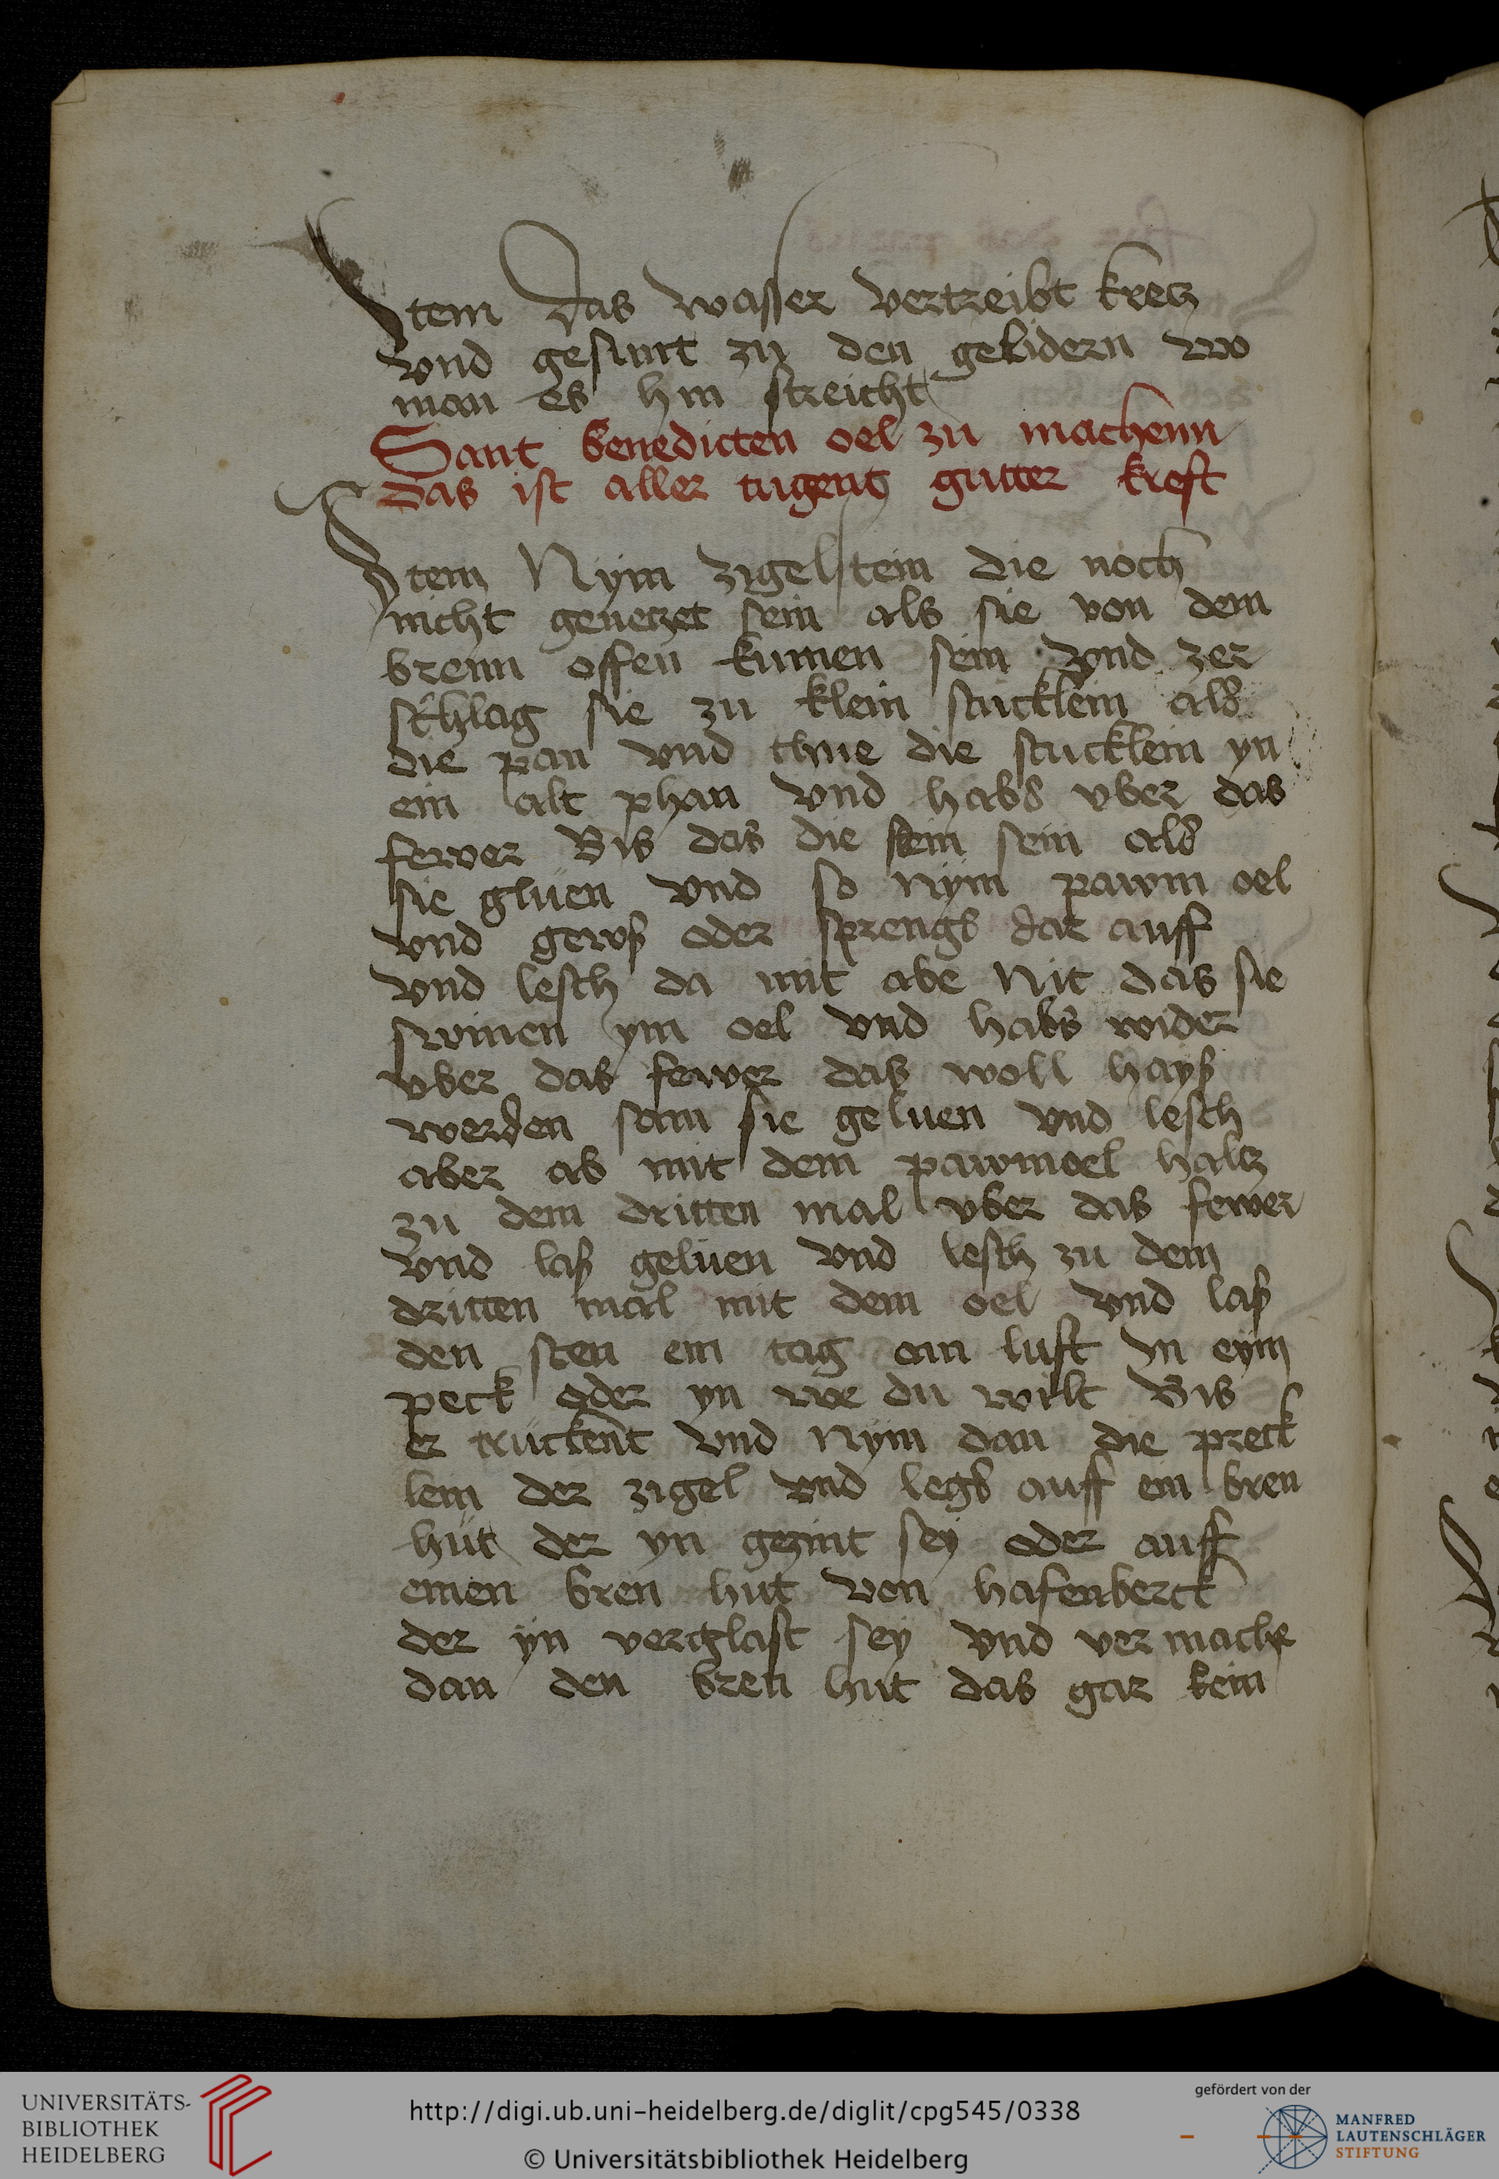 Item das wasser vertreibt kretz
vnd gesunt zu den gelidern wo
man es hin streicht
Sant benedicten oel zu machenn
das ist aller tugent gutter kreft
Item Nym zigelstein die noch
nicht genetzet sein als sie von dem
brenn offen kumen sein vnd zer
schlag sie zu klein stucklein als
die pan vnd thue die stucklein yn
ein alt phan vnd habs vber das
fewer Bis das die stein sein als
sie glüen vnd so nym pawm oel
vnd gews oder sprengs dar auff
vnd lesch da mit abe Nit das sie
swimen ym oel vnd habs wider
vber das fewer das woll hays
werden sam sie geluen vnd lesch
aber ab mit dem pawmoel haltz
zu dem dritten mal vber das fewer
vnd las gelüen vnd lesch zu dem
dritten mal mit dem oel vnd las
den sten ein tag an luft In eym
peck oder yn we du wilt Bis
er truckent vnd nym dan die preck
lein der zigel vnd legs auff ein bren
hüt der yn gezint sey oder auff
einen bren hut von hafenberck
der yn verglast sey vnd ver mache
dan den bren hut das gar kein
UNIVERSITÄTS-
BIBLIOTHEK
HEIDELBERG
http://digi.ub.uni-heidelberg.de/diglit/cpg545/0338
© Universitätsbibliothek Heidelberg
gefördert von der
MANFRED
LAUTENSCHLÄGER
STIFTUNG